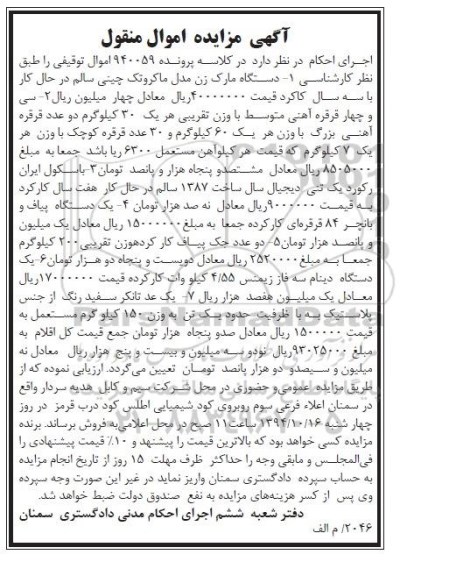 آگهی مزایده اموال منقول
اجرای احکام در نظر دارد در کلاسه پرونده ۹۴۰۰۵۹ اموال توقیفی را طبق
نظر کارشناسی ۱- دستگاه مارک زن مدل ماکروتک چینی سالم در حال کار
با سه سال کاکرد قیمت ۴۰۰۰۰۰۰۰ریال معادل چهار میلیون ریال۲- سی
و چهار قرقره آهنی متوسط با وزن تقریبی هر یک ۳۰ کیلوگرم دو عدد قرقره
آهنی بزرگ با وزن هر یک ۶۰ کیلوگرم و ۳۰ عدد قرقره کوچک با وزن هر
یک ۷ کیلوگرم که قیمت هر کیلوآهن مستعمل ۶۳۰۰ ریا باشد جمعا به مبلغ
۸۵۰۵۰۰۰ ریال معادل مشتصدو پنجاه هزار و پانصد تومان۳- باسکول ایران
رکورد یک تنی دیجیال سال ساخت ۱۳۸۷ سالم در حال کار هفت سال کارکرد
به قیمت ۹۰۰۰۰۰۰ریال معادل نه صد هزار تومان ۴- یک دستگاه پیاف و
بانچر ۸۴ قرقره‌ای کارکرده جمعا به مبلغ ۱۵۰۰۰۰۰۰ ریال معادل یک میلیون
و پانصد هزار تومان۵- دو عدد جک پیاف کار کردهوزن تقریبی۲۰۰ کیلوگرم
جمعا به مبلغ ۲۵۲۰۰۰۰ ریال معادل دویست و پنجاه دو هزار تومان۶-یک
دستگاه دینام سه فاز زیمنس ۴/۵۵ کیلو وات کارکرده قیمت ۱۷۰۰۰۰۰۰ریال
معادل یک میلیون هفصد هزار ریال ۷- یک عد تانکر سفید رنگ از جنس
پلاستیک به با ظرفیت حدود یک تن به وزن ۱۵۰ کیلو گرم مستعمل به
قیمت ۱۵۰۰۰۰۰ ریال معادل صدو پنجاه هزار تومان جمع قیمت کل اقلام به
مبلغ ۹۳۰۲۵۰۰۰ریال نودو سه میلیون و بیست و پنج هزار ریال معادل نه
میلیون و سیصدو دو هزار پانصد تومان تعیین می‌گردد. ارزیابی نموده که از
طریق مزایده عمومی‌و حضوری در محل شرکت سیم و کابل هدیه سردار واقع
در سمنان اعلاء فرعی سوم روبروی کود شیمیایی اطلس کود درب قرمز در روز
چهار شنبه ۱۳۹۴/۱۰/۱۶ ساعت۱۱ صبح در محل اعلامی‌به فروش برساند. برنده
مزایده کسی خواهد بود که بالاترین قیمت را پیشنهد و ۱۰٪ قیمت پیشنهادی را
فی‌المجلس و مابقی وجه را حداکثر ظرف مهلت ۱۵ روز از تاریخ انجام مزایده
به حساب سپرده دادگستری سمنان واریز نماید در غیر این صورت وجه سپرده
وی پس از کسر هزینه‌های مزایده به نفع صندوق دولت ضبط خواهد شد.
دفتر شعبه ششم اجرای احکام مدنی دادگستری سمنان
۲۰۴۶/ م الف